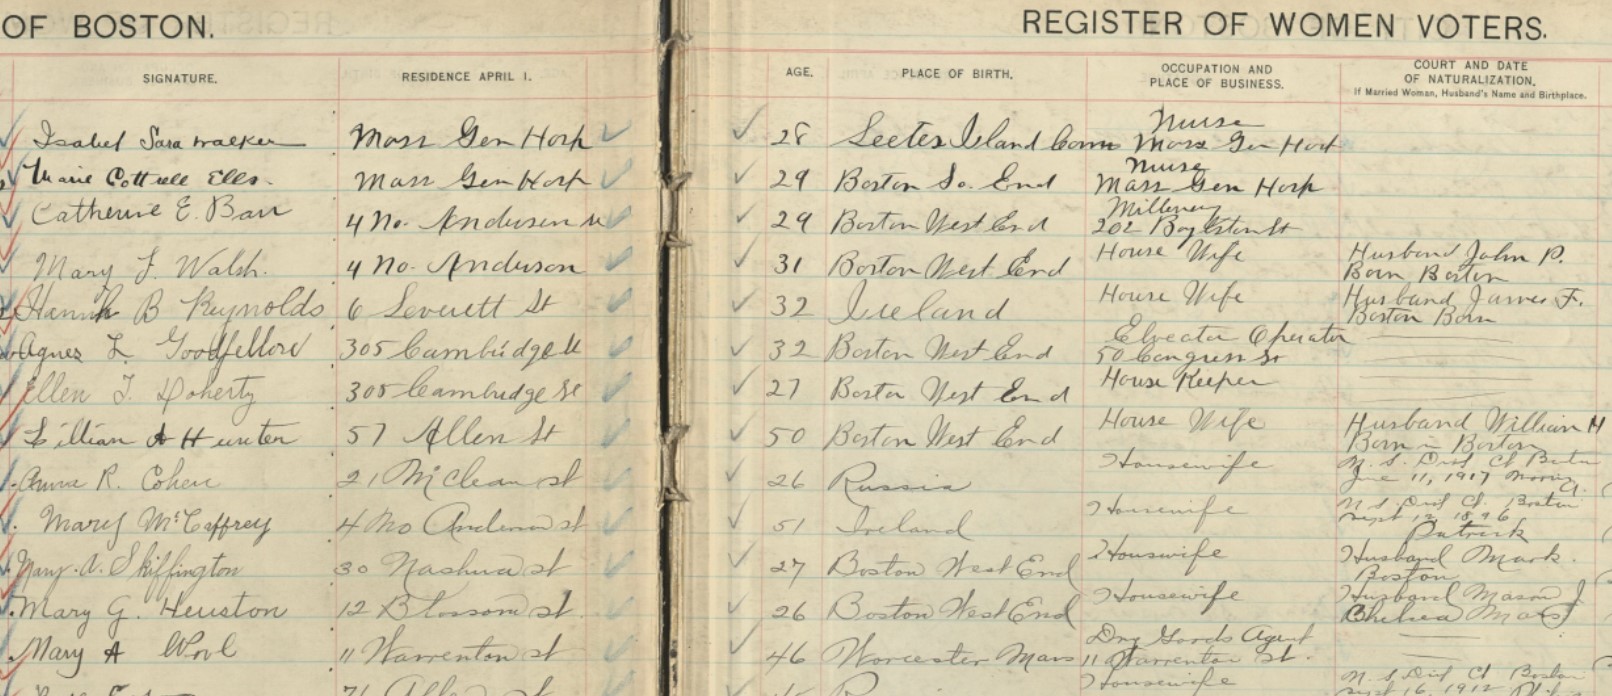 OF BOSTON.
REGISTER OF WOMEN VOTERS.
SIGNATURE. RESIDENCE APRIL 1. AGE. PLACE OF BIRTH. OCCUPATION AND PLACE OF BUSINESS. COURT AND DATE OF NATURALIZATION. If Married Woman, Husband's Name and Birthplace.
Isabel Sara Walker Mass Gen Hosp 28 Leetes Island Conn Nurse Mass Gen Hosp
Marie Cottrell Ells. Mass Gen Hosp 29 Boston So. End Nurse Mass Gen Hosp
Catherine E. Barr 4 No. Anderson st 29 Boston West End Millinery 202 Boylston St
Mary J. Walsh. 4 No. Anderson 31 Boston West End House Wife Husband John P. Born Boston
Hannah B Reynolds 6 Leverett St 32 Ireland House Wife Husband James F. Boston Born
Agnes L. Goodfellow 305 Cambridge st 32 Boston West End Elveator Operator 50 Congress St
Ellen T. Doherty 305 Cambridge St 27 Boston West End House Keeper
Lillian A Hunter 57 Allen St 50 Boston West End House Wife Husband William H Born in Boston
Anna R. Cohen 21 McLean st 26 Russia Housewife U. S. Dist Ct Boston June 11, 1917
Mary McCaffrey 4 No Anderson st 51 Ireland Housewife U S Dist Ct. Boston Sept 12 1896 Patrick
Mary. A. Skiffington 30 Nashua st 27 Boston West End Housewife Husband Mark. Boston
Mary G. Heuston 12 Blossom st 26 Boston West End Housewife Husband Mason J Chelsea Mass
Mary A Wool 11 Warrenton st 46 Worcester Mass Dry Goods Agent 11 Warrenton St.
71 Allen st Housewife U. S. Dist Ct Boston Sept 16, 1912